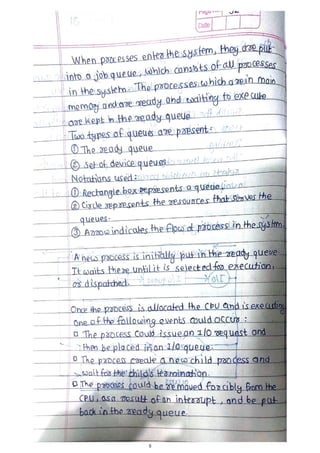 Page No. 32
Date
When processes enter the system, they are put
into a job queue, which consists of all processes
in the system. The processes which are in main
memory and are ready and waiting to execute
are kept in the ready queue
Two types of queues are present:
① The ready queue
② Set of device queues
Notations used:
① Rectangle box represents a queue
② Circle represents the resources that serves the
queues.
③ Arrow indicates the flow of process in the system.
A new process is initially put in the ready queue
It waits there until it is selected for execution,
or dispatched.
Once the process is allocated the CPU and is executing
one of the following events could occur:
□ The process could issue an I/O request and
then be placed in an I/O queue.
□ The process create a new child process and
wait for the child's termination.
□ The process could be removed forcibly from the
CPU, as a result of an interrupt, and be put
back in the ready queue